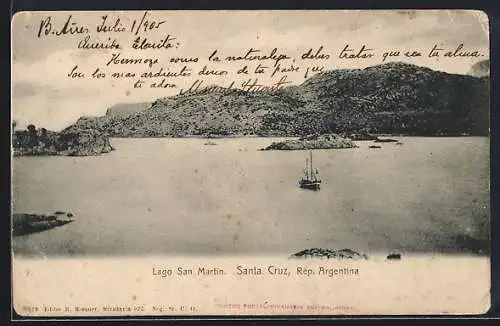 B. Aires Julio 1/905
Querida Clarita:
Hermoza como la naturaleza, debes tratar que sea tu alma.
Son los mas ardientes deseos de tu tia Cruz y tu padre que
te adora
Lago San Martin. Santa Cruz, Rep. Argentina
Editor R. Rosauer, Rivadavia 571. Neg. St. C. O.